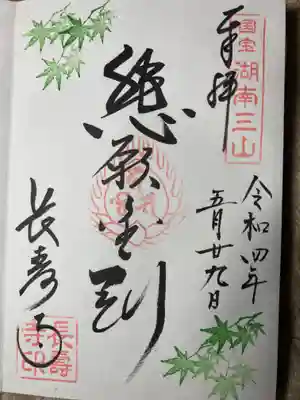 奉拝
国宝湖南三山
令和四年
五月廿九日
願金
長寿寺
長壽寺印